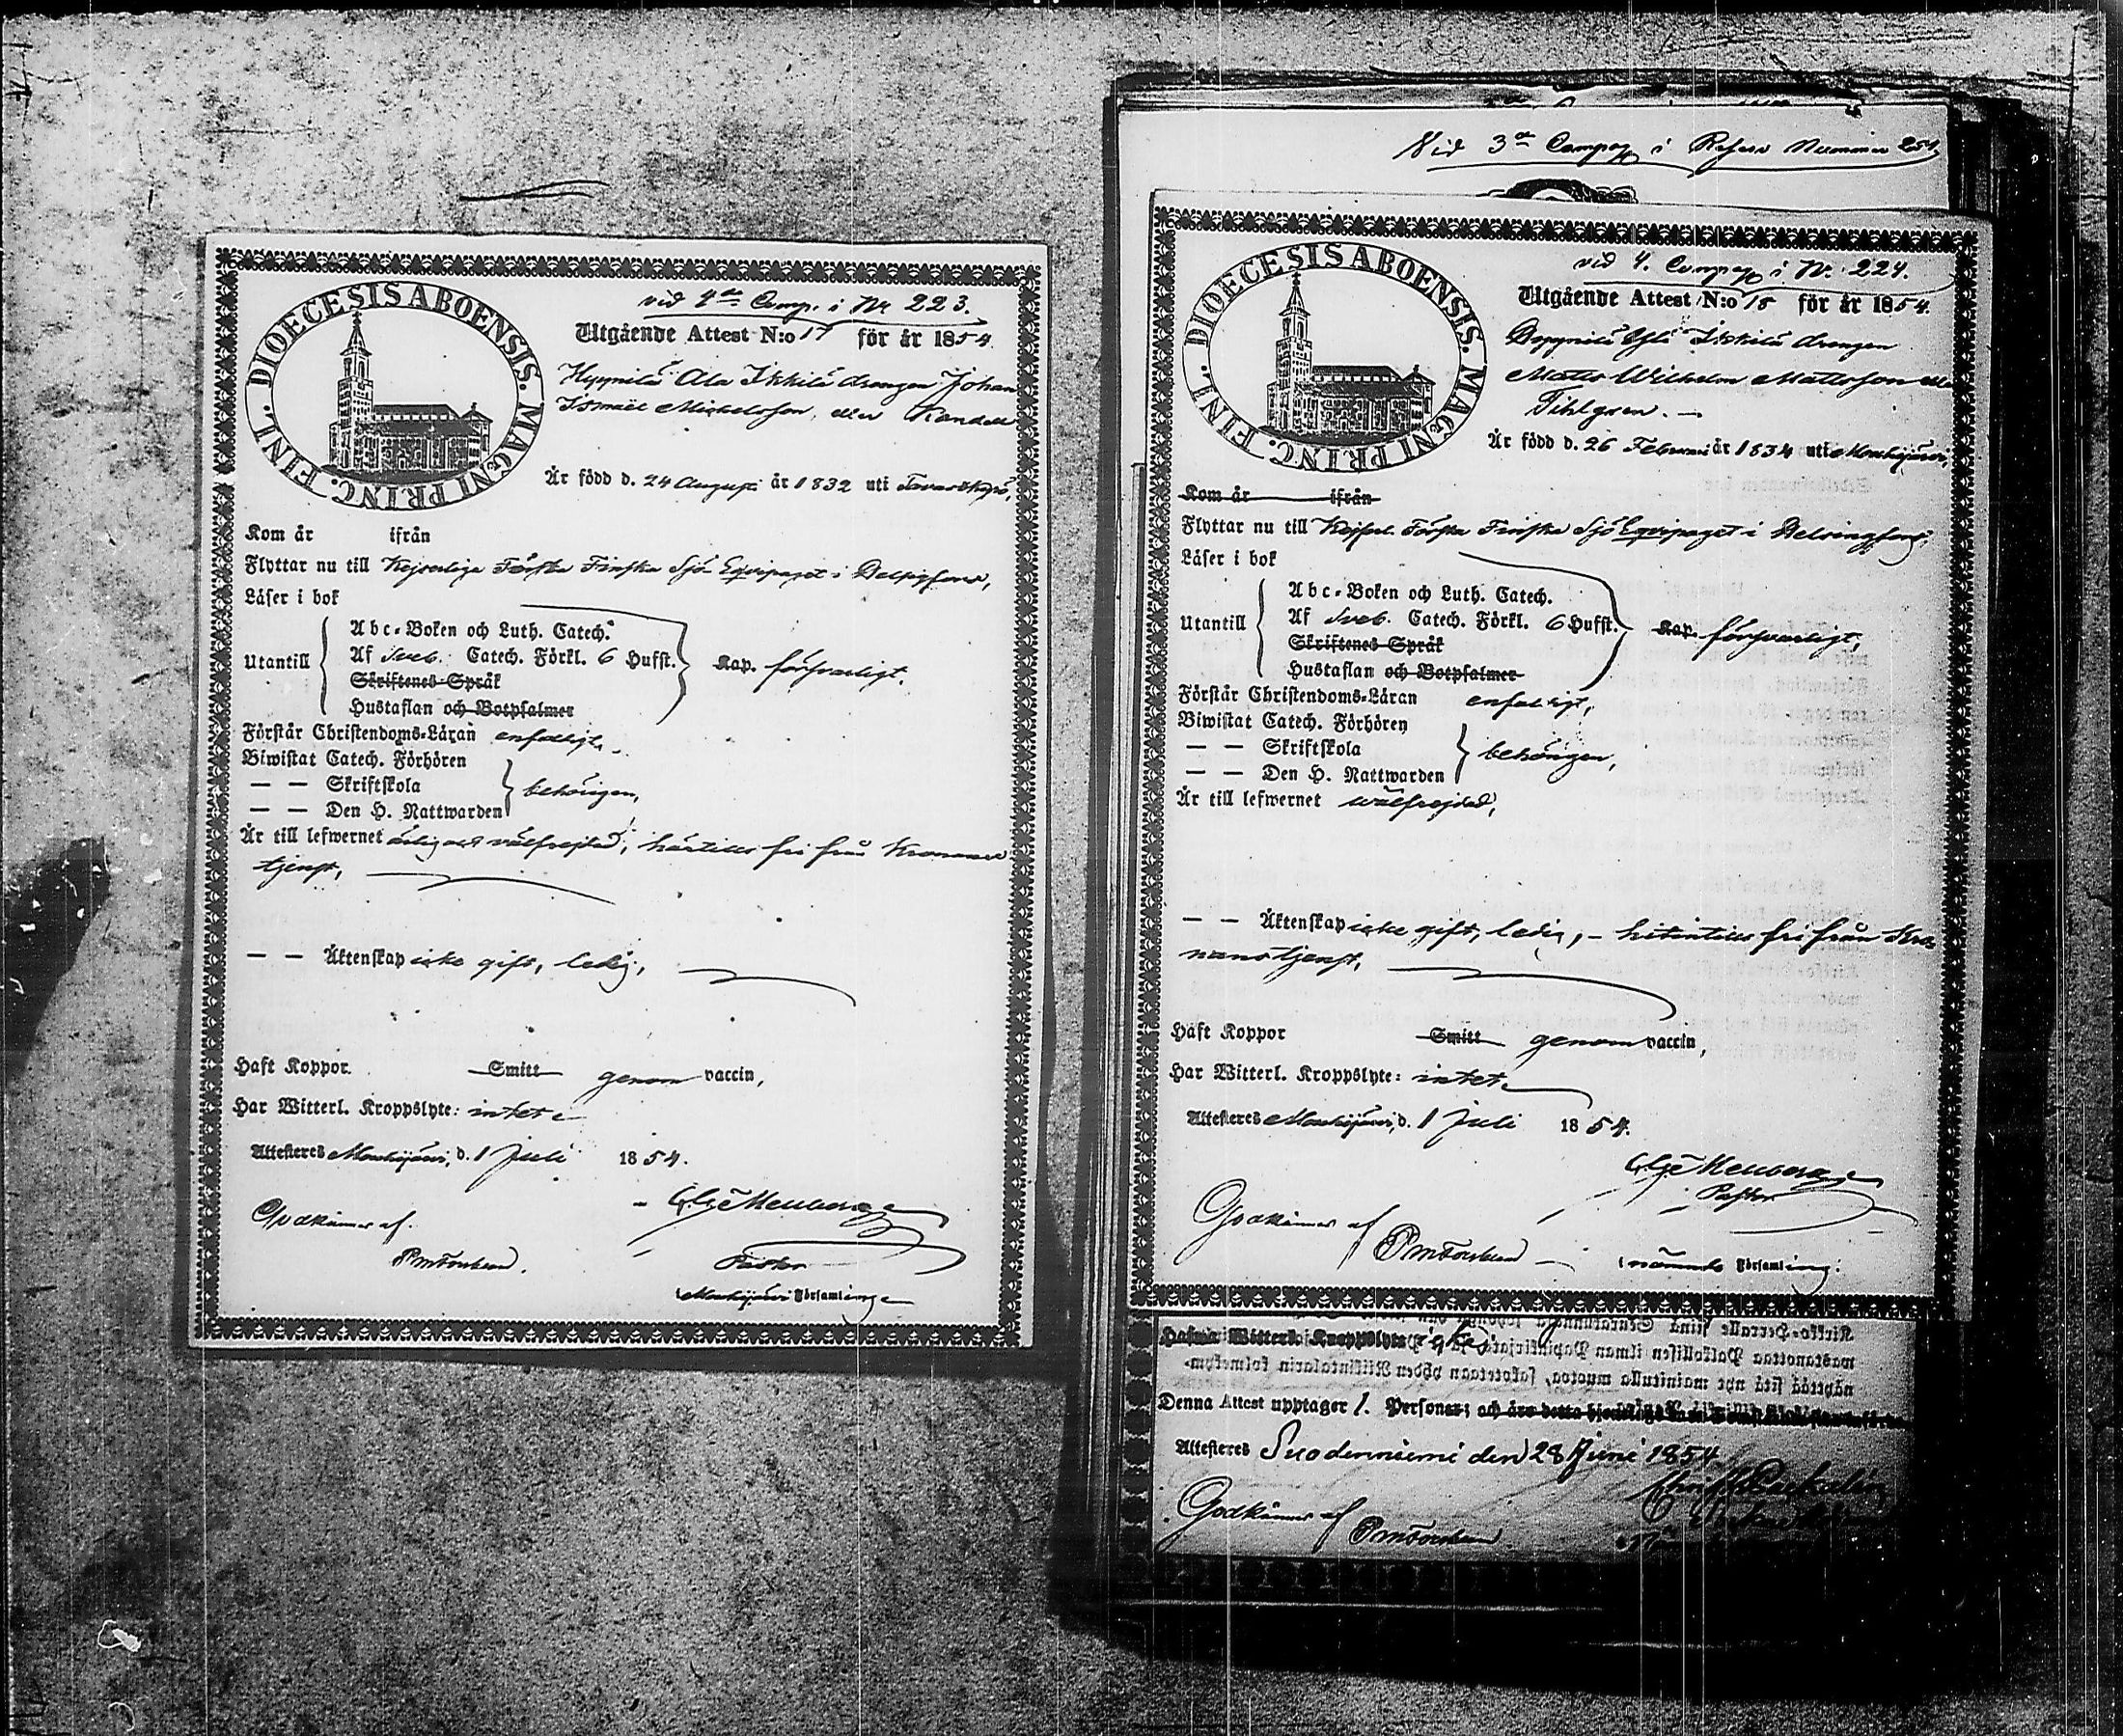 DIOECESIS ABOENSIS. MAGNI PRINC. FINL.
vid 4de Comp. i Nr 223.
Utgående Attest N:o 17 för år 1854
Hyynilä Ala Ikkilä drengen Johan
Ismaël Michelsson, eller
Är född d. 24 Augusti år 1832 uti
Kom år ifrån
Flyttar nu till Kejserliga Första Finska Sjö Equipaget i
Läser i bok
Utantill
Abc-Boken och Luth. Catech.
Af Sveb. Catech. Förkl. 6 Hufst.
Skriftenes Språk
Hustaflan och Botpsalmer
Kap. försvarligt.
Förstår Christendoms-Läran enfaldigt,
Biwistat Catech. Förhören
— — Skriftskola
— — Den H. Nattwarden
behörigen,
Är till lefwernet ärlig och välfrejdad, härtills fri från Kronones
tjenst,
— — Äktenskap icke gift, ledig,
Haft Koppor Smitt genom vaccin,
Har Witterl. Kroppslyte: intet
Attesteres Mouhijärvi, d. 1 Juli 1854.
Godkännes af
Pastor
Mouhijärvi Församling
Vid 3de Compag i Nummer 254
DIOECESIS ABOENSIS. MAGNI PRINC. FINL.
vid 4. Compag i Nr 224.
Utgående Attest N:o 18 för år 1854.
Ikkilä drengen
Matts Wilhelm Mattsson eller
Tihlgren.
Är född d. 26 Februari år 1834 uti Mouhijärvi,
Kom år ifrån
Flyttar nu till Kejserl. Första Finska Sjö Equipaget i Helsingfors,
Läser i bok
Utantill
Abc-Boken och Luth. Catech.
Af Sveb. Catech. Förkl. 6 Hufst.
Skriftenes Språk
Hustaflan och Botpsalmer
Kap. försvarligt,
Förstår Christendoms-Läran enfaldigt,
Biwistat Catech. Förhören
— — Skriftskola
— — Den H. Nattwarden
behörigen,
Är till lefwernet wälfrejdad,
— — Äktenskap icke gift, ledig, – hitintills fri från Kro
nans tjenst,
Haft Koppor Smitt genom vaccin,
Har Witterl. Kroppslyte: intet
Attesteres Mouhijärvi, d. 1 Juli 1854.
Pastor
Godkännes af
i nämnde Församling.
Denna Attest upptager 1. Personer; och
Attesteres Suodenniemi den 28 Juni 1854
Godkännes af